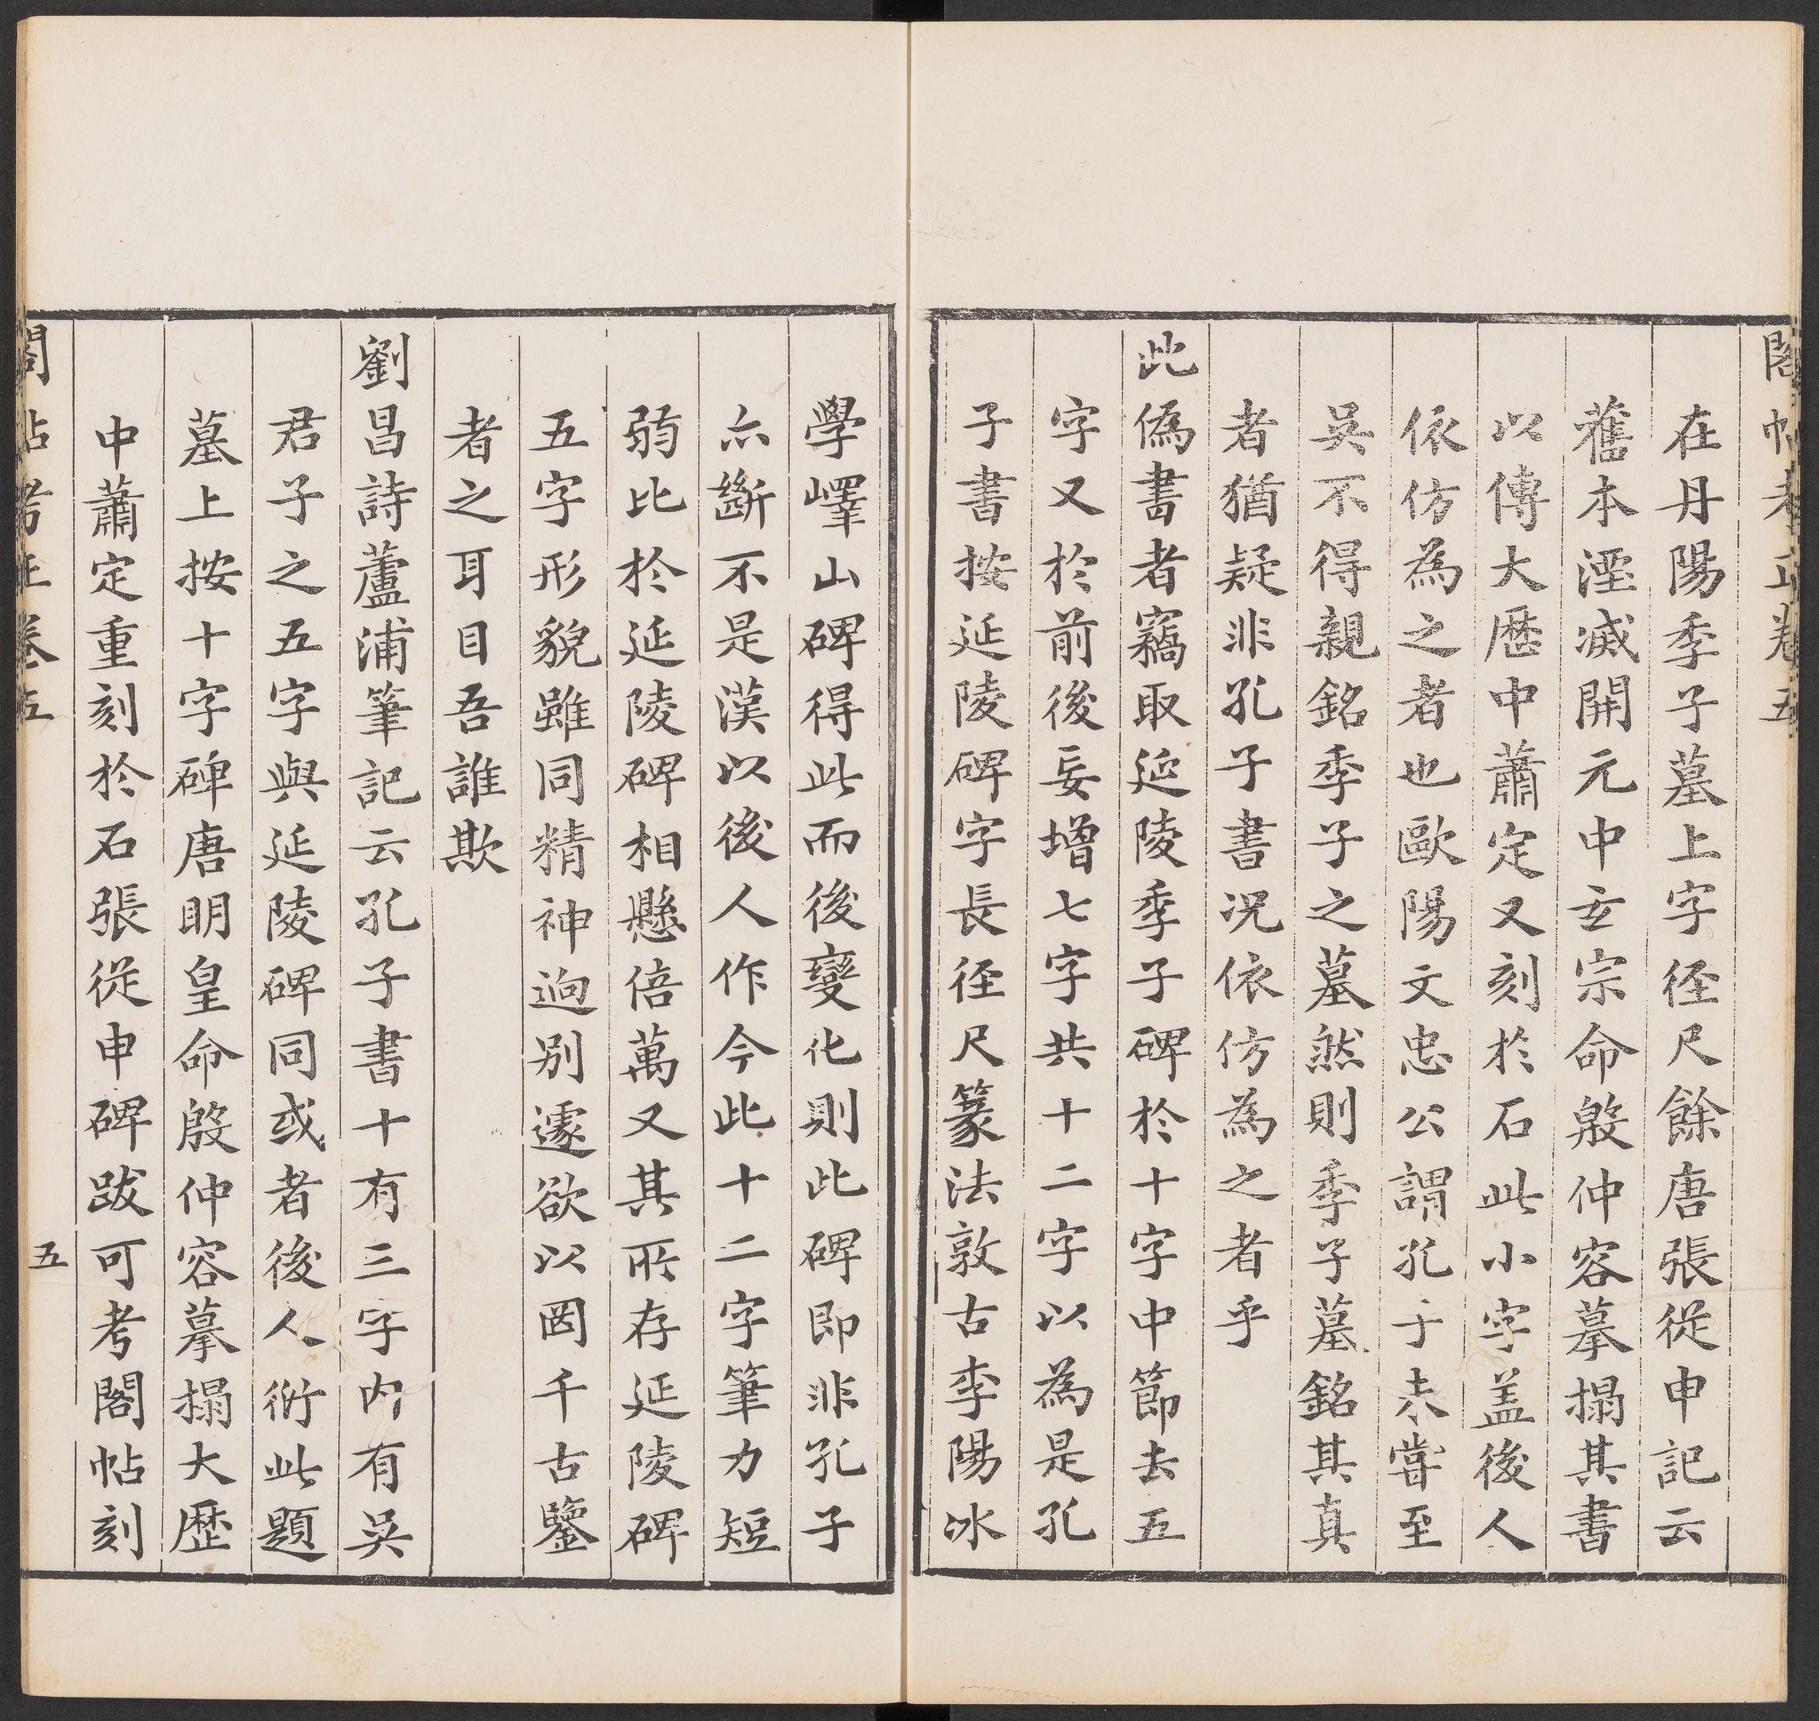 閣帖考正卷五
在丹陽季子墓上字徑尺餘唐張從申記云
舊本湮滅開元中玄宗命殷仲容摹搨其書
以傳大歷中蕭定又刻於石此小字盖後人
依仿為之者也歐陽文忠公謂孔子未嘗至
吳不得親銘季子之墓然則季子墓銘其真
者猶疑非孔子書况依仿為之者乎
此偽書者竊取延陵季子碑於十字中節去五
字又於前後妄增七字共十二字以為是孔
子書按延陵碑字長徑尺篆法敦古李陽冰
學嶧山碑得此而後變化則此碑即非孔子
亦斷不是漢以後人作今此十二字筆力短
弱比於延陵碑相懸倍萬又其所存延陵碑
五字形貌雖同精神逈別遽欲以罔千古鑒
者之耳目吾誰欺
劉昌詩蘆浦筆記云孔子書十有三字内有吳
君子之五字與延陵碑同或者後人衍此題
墓上按十字碑唐明皇命殷仲容摹搨大歷
中蕭定重刻於石張從申碑跋可考閣帖刻
閣帖考正卷五
五